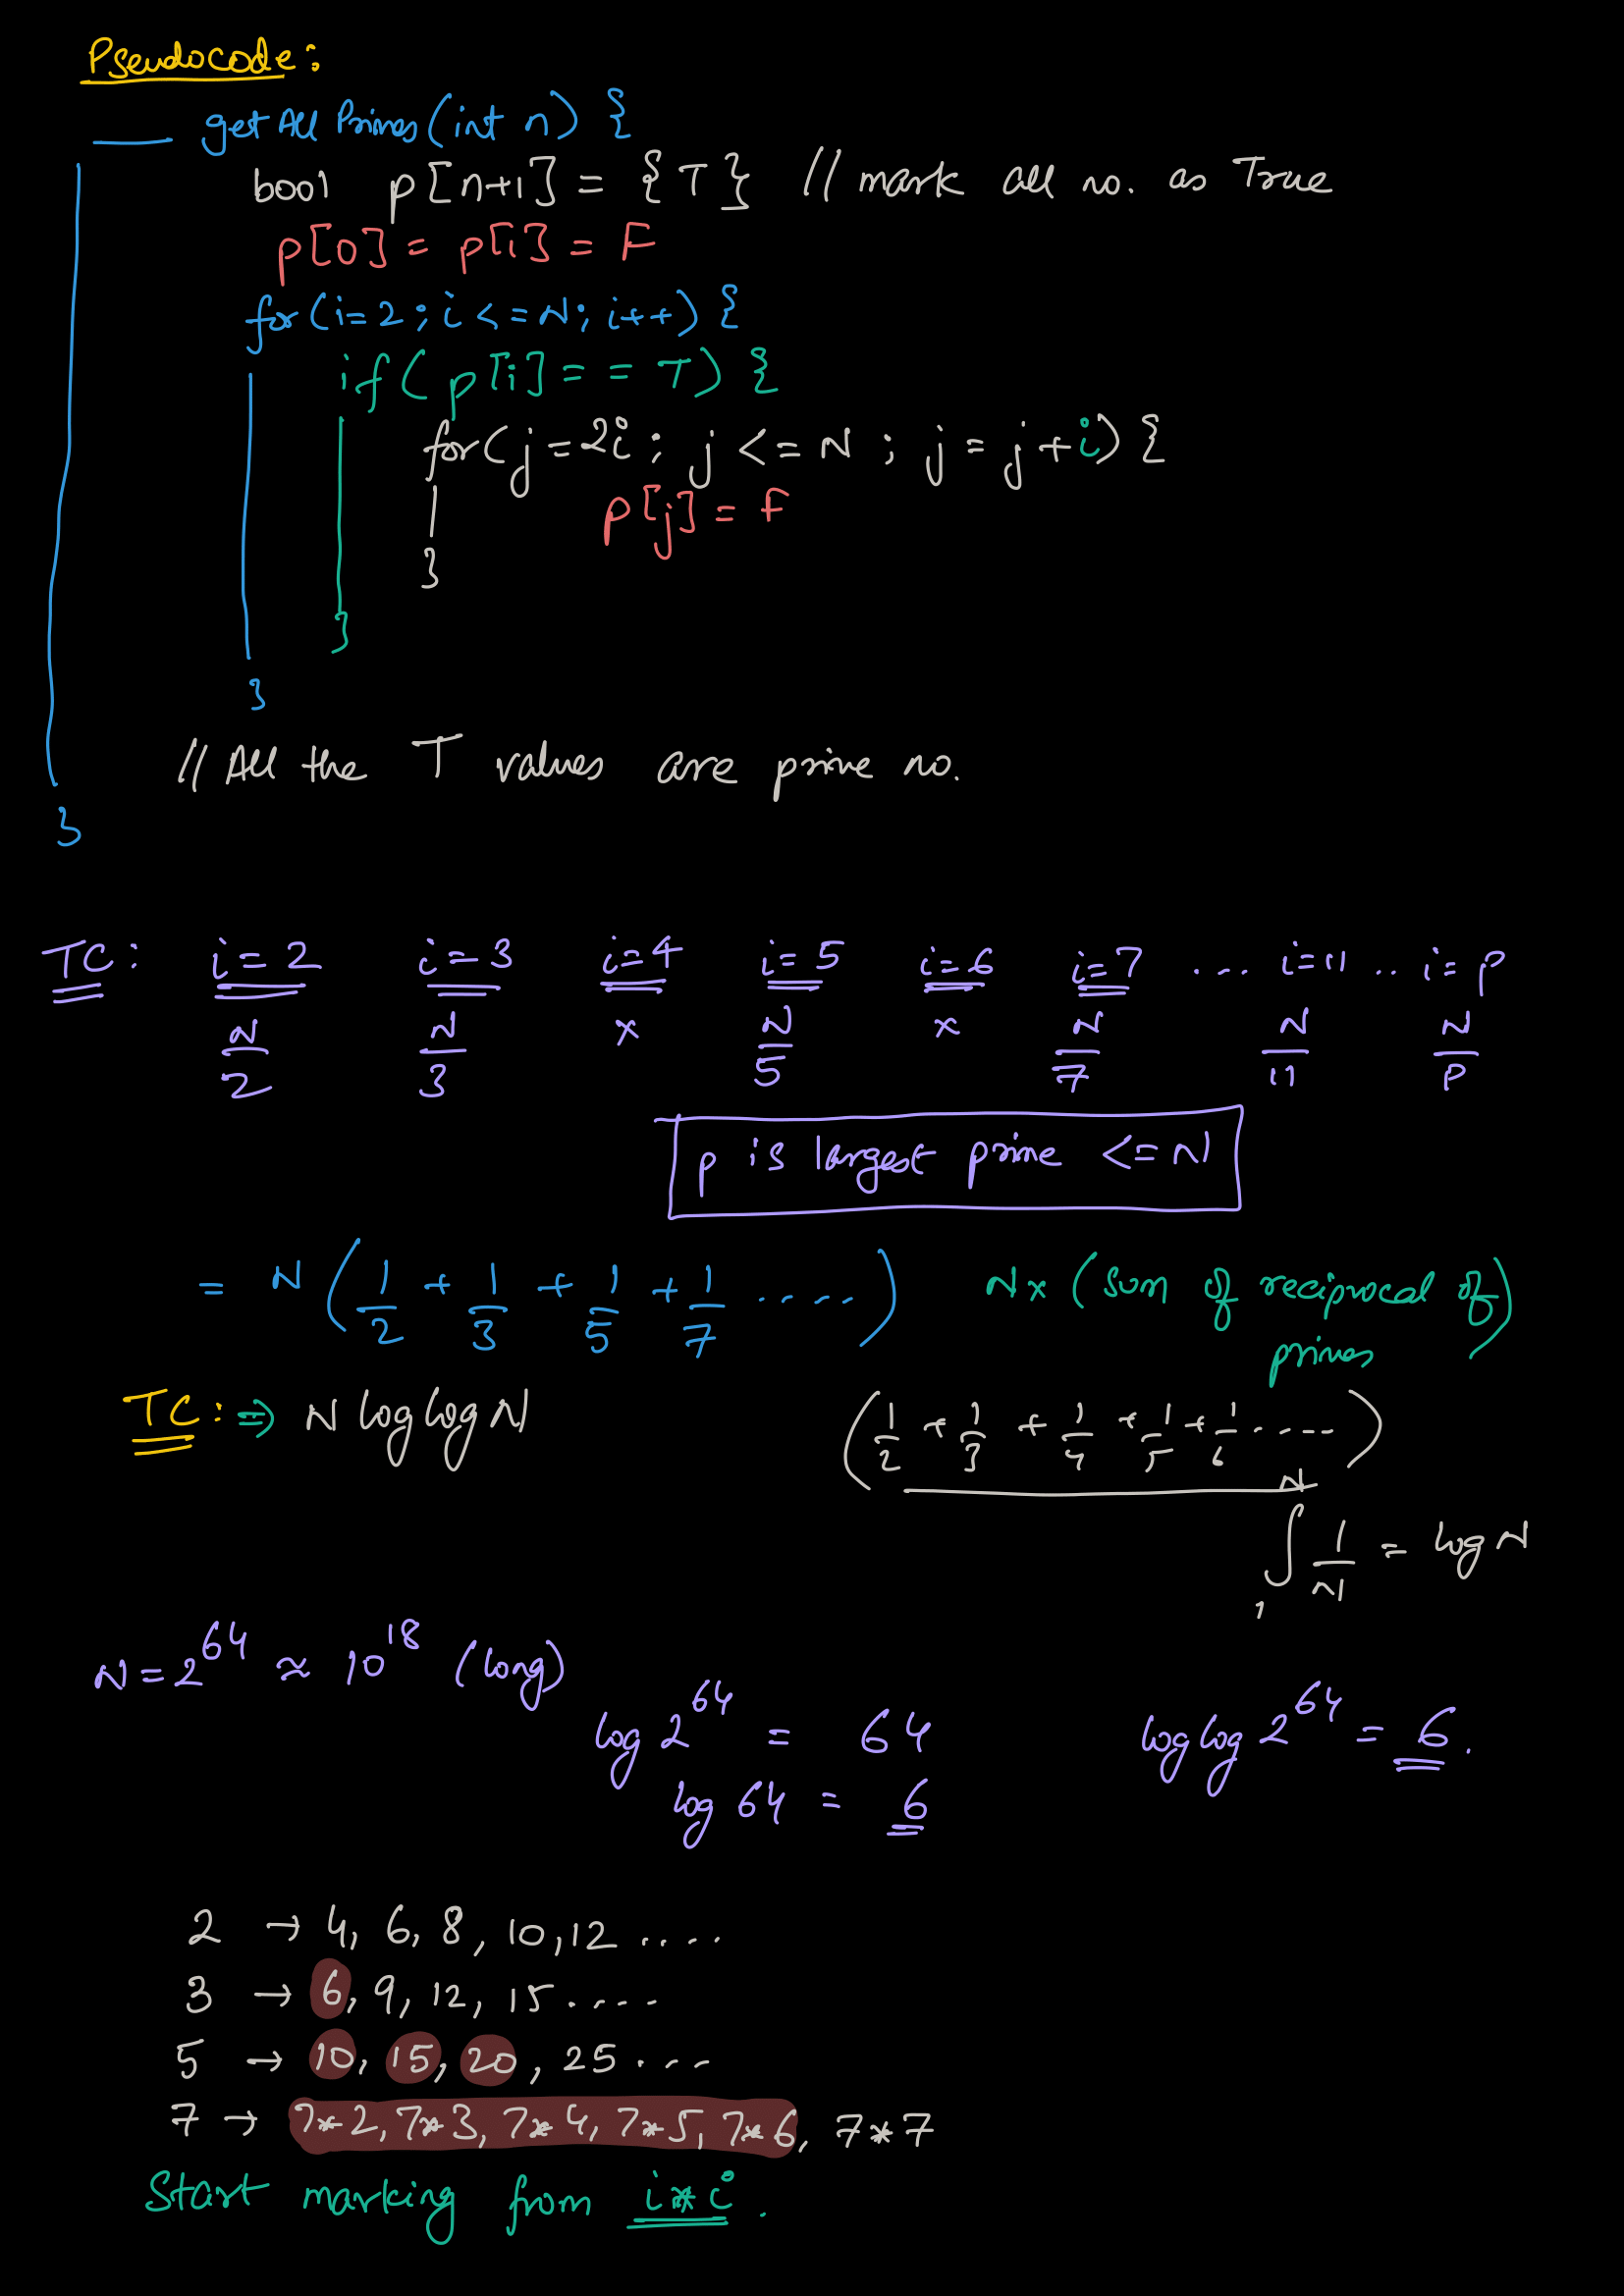 Pseudocode:
___ getAllPrimes(int n) {
bool p[n+1] = {T} // mark all no. as True
p[0] = p[1] = F
for(i=2; i<=N; i++) {
if(p[i] == T) {
for(j=2i; j<=N; j=j+i) {
p[j] = F
}
}
}
// All the T values are prime no.
}
TC: i=2 i=3 i=4 i=5 i=6 i=7 .... i=11 .. i=p
N/2 N/3 x N/5 x N/7 N/11 N/p
p is largest prime <=N
= N(1/2 + 1/3 + 1/5 + 1/7 .....) N x (sum of reciprocal of
primes)
TC: => N log log N (1/2 + 1/3 + 1/4 + 1/5 + 1/6 .....)
∫₁ᴺ 1/N = log N
N = 2^64 ≈ 10^18 (long)
log 2^64 = 64 log log 2^64 = 6.
log 64 = 6
2 → 4, 6, 8, 10, 12 ....
3 → 6, 9, 12, 15 ....
5 → 10, 15, 20, 25 ....
7 → 7*2, 7*3, 7*4, 7*5, 7*6, 7*7
Start marking from i*i.